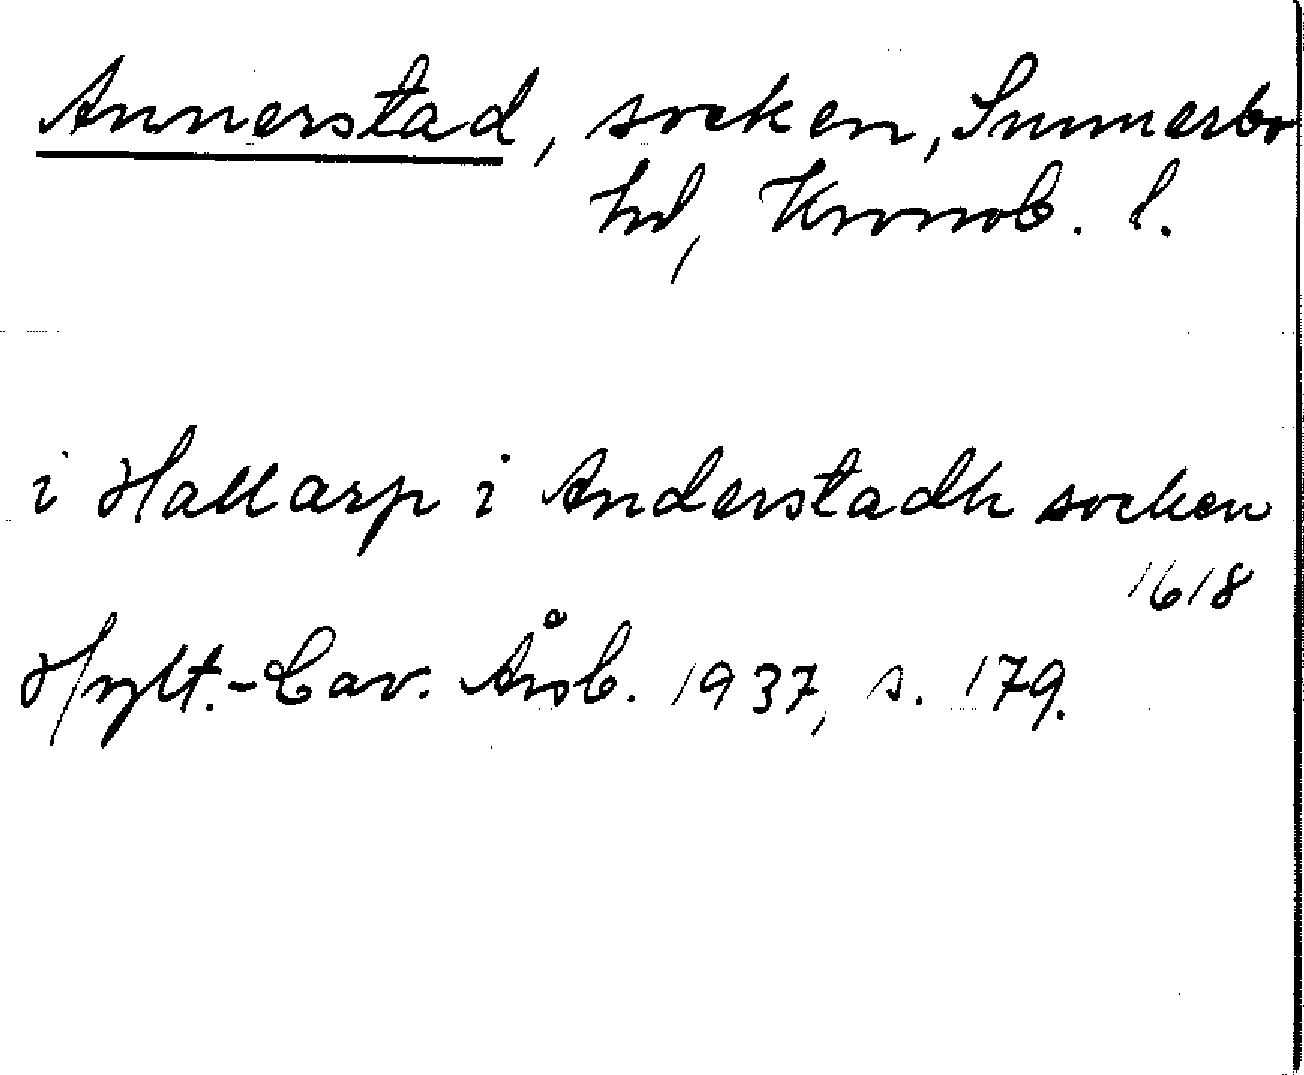 Annerstad, socken, Sunnerbo
hd, Kronob. l.
i Hallarp i Anderstadh socken
1618
Hylt.-Cav. Årsb. 1937, s. 179.